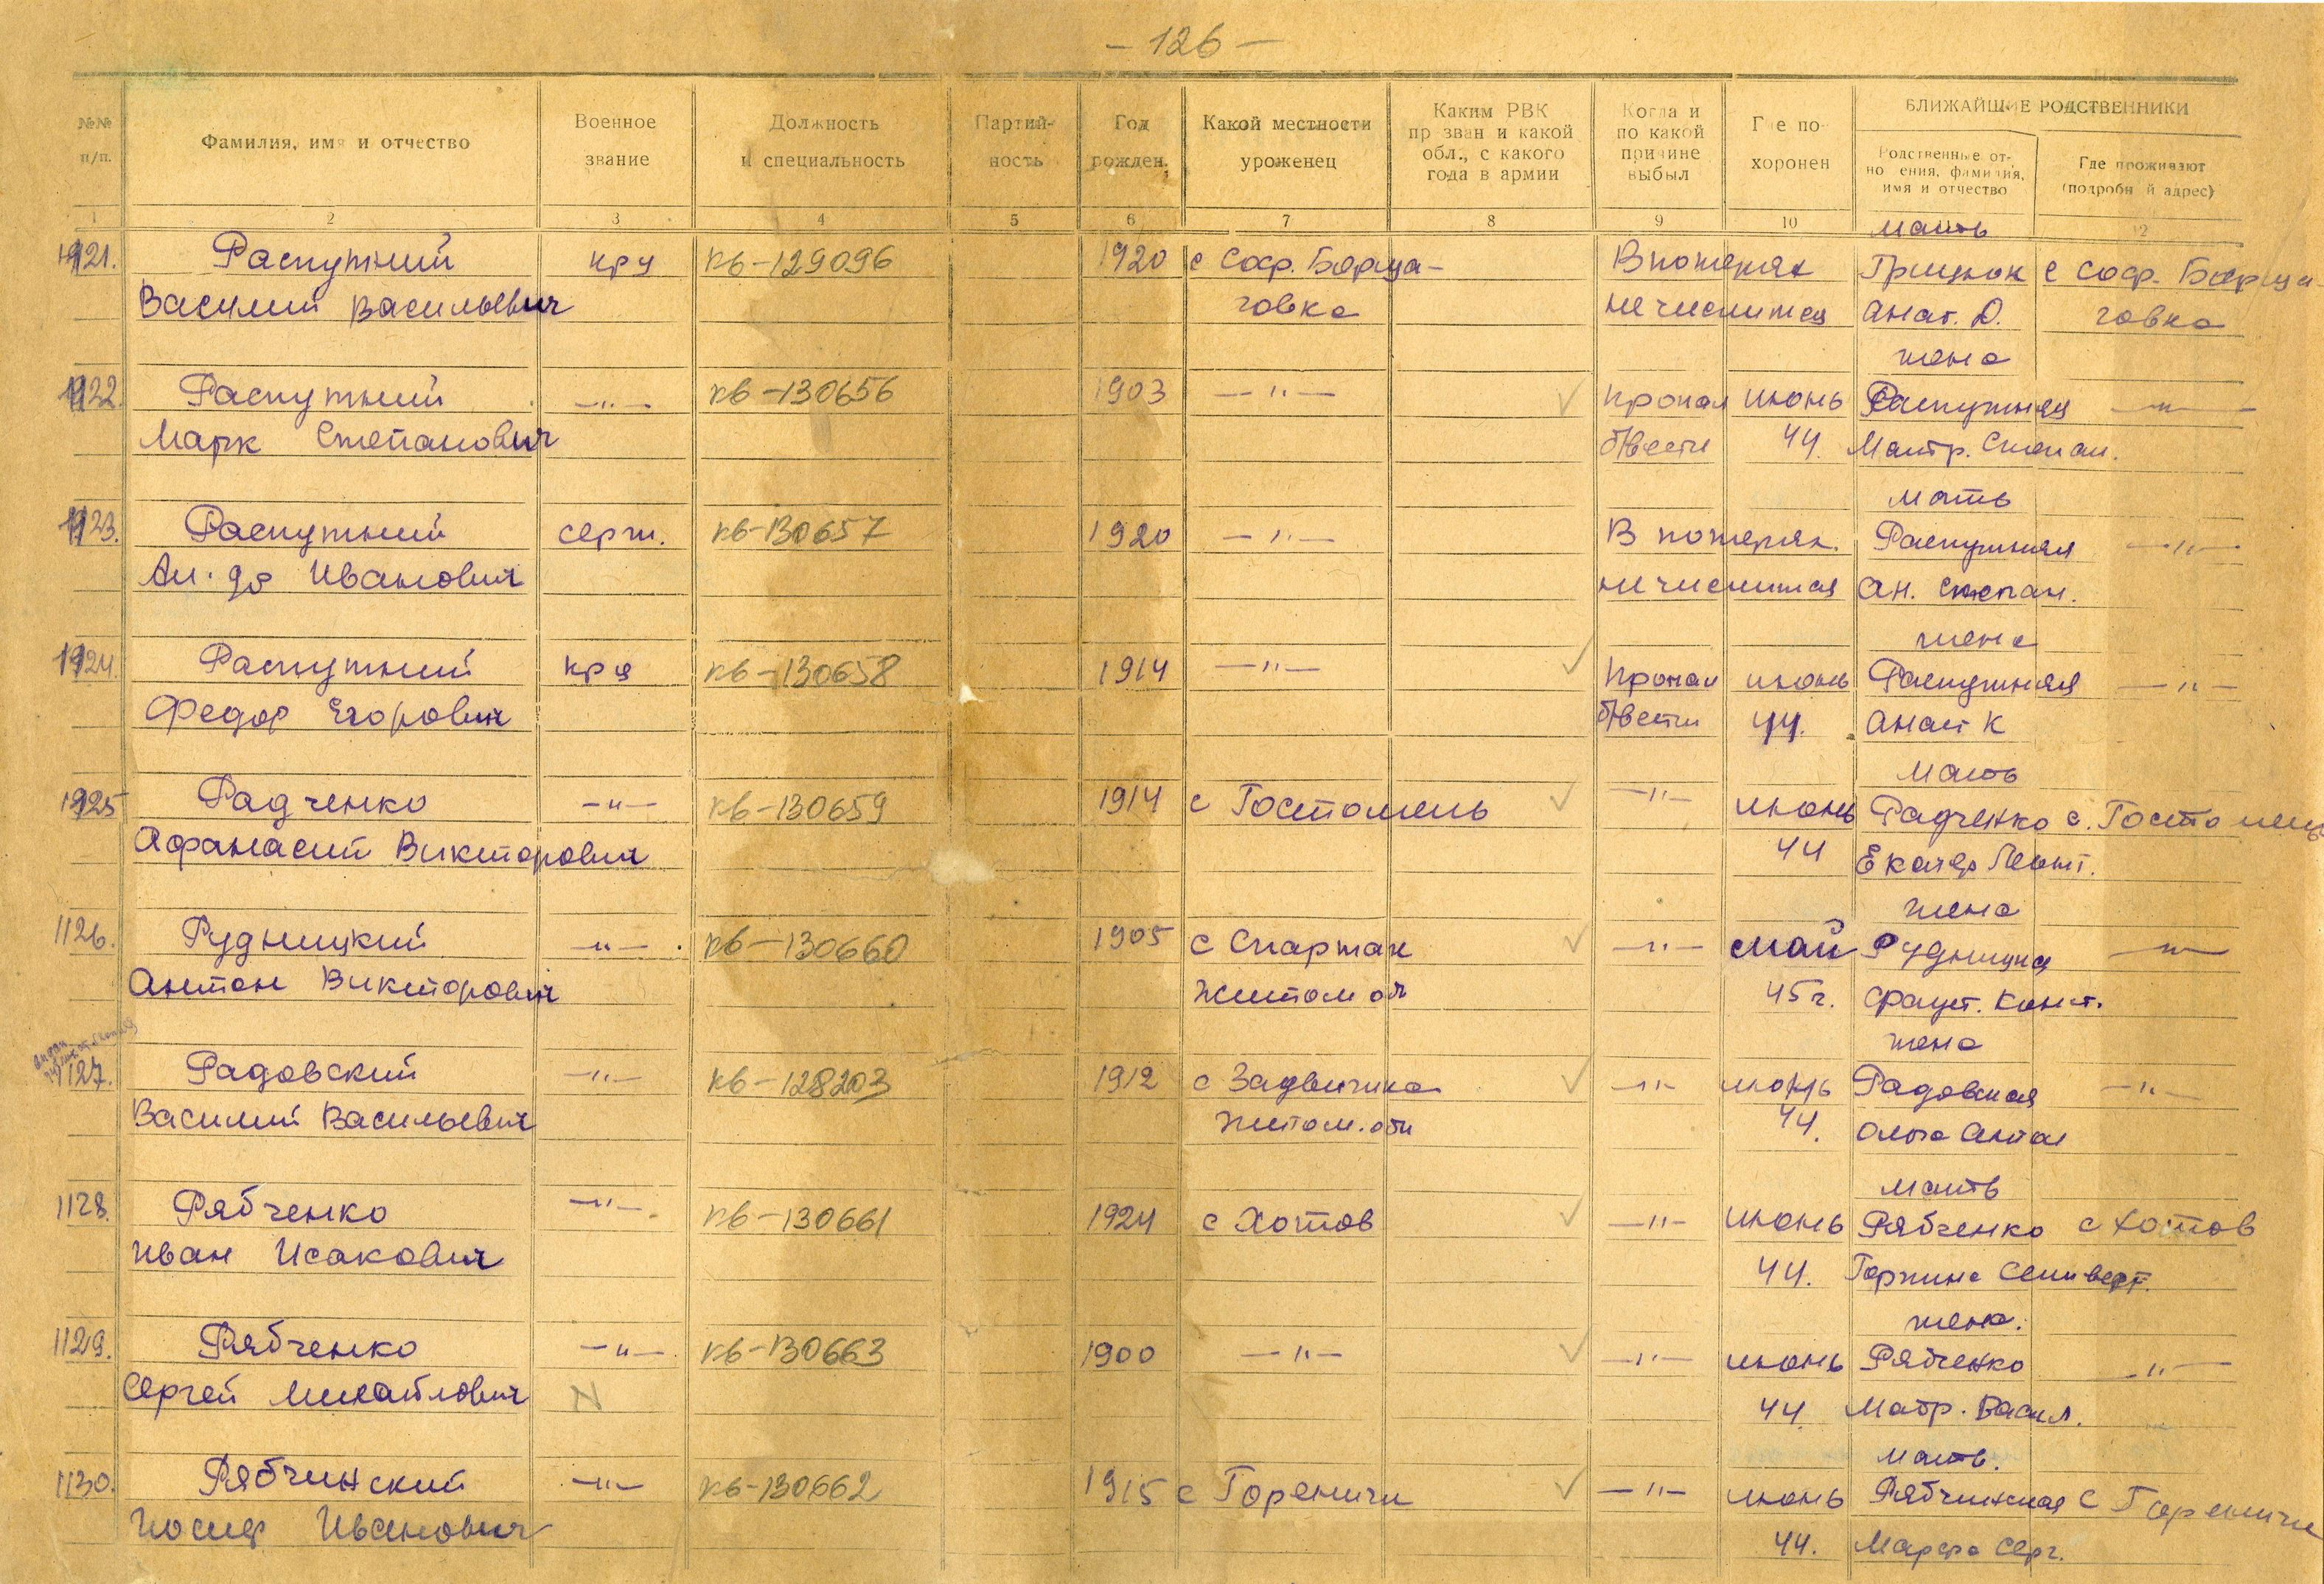 - 126 -
№№ п/п.
Фамилия, имя и отчество
Военное звание
Должность и специальность
Партий- ность
Год рожден.
Какой местности уроженец
Каким РВК пр зван и какой обл., с какого года в армии
Когда и по какой причине выбыл
Где по- хоронен
БЛИЖАЙШИЕ РОДСТВЕННИКИ
Родственные от- но ения, фамилия, имя и отчество
Где проживают (подробн й адрес)
1 2 3 4 5 6 7 8 9 10 12
мать
1121. Распутний кру кв-129096 1920 с Соф. Борща- В потерях Грицюк с Соф. Борща-
Василий Васильевич говка не числится Анат. Д. говка
жена
1122. Распутний -"- кв-130656 1903 -"- ✓ пропал июнь Распутняя -"-
Марк Степанович б/вести 44. Матр. Степан.
мать
1123. Распутний серж. кв-130657 1920 -"- В потерях. Распутняя -"-
Ал-др Иванович не числится Ан. Степан.
жена
1124. Распутний кр-ц кв-130658 1914 -"- ✓ пропал июнь Распутняя -"-
Федор Егорович б/вести 44. Анат К
мать
1125 Радченко -"- кв-130659 1914 с Гостомель ✓ -"- июнь Радченко с. Гостомель
Афанасий Викторович 44 Екатер Леонт.
жена
1126. Рудницкий -"- кв-130660 1905 с Спартак ✓ -"- май Рудницка -"-
Антон Викторович Житом об 45г. Франт. Конст.
жена
1127. Радовский -"- кв-128203 1912 с ✓ -"- июнь Радовская -"-
Василий Васильевич Житом. обл 44. Ольга Антон
мать
1128. Рябченко -"- кв-130661 1924 с Хотов ✓ -"- июнь Рябченко с Хотов
Иван Исакович 44. Горпина
жена.
1129. Рябченко -"- кв-130663 1900 -"- ✓ -"- июнь Рябченко -"-
Сергей Михайлович N 44 Матр. Васил.
мать.
1130. Рябчинский -"- кв-130662 1915 с Гореничи ✓ -"- июнь Рябчинская с Гореничи
Иосиф Иванович 44. Марфа Серг.